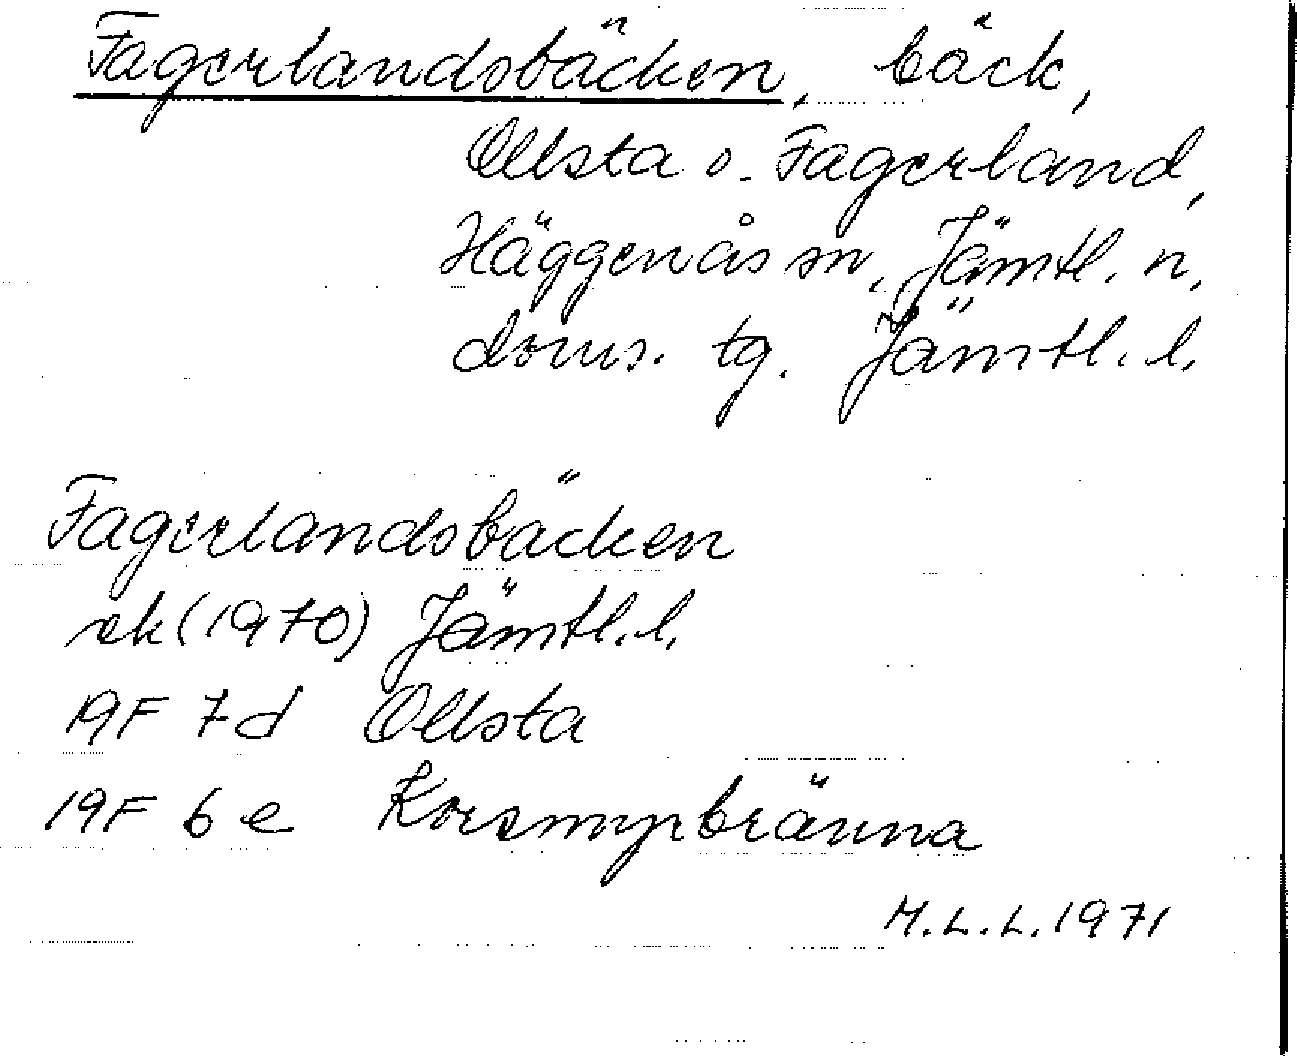 Fagerlandsbäcken, bäck,
Ollsta o. Fagerland,
Häggenås sn, Jämtl. n.
doms. tg. Jämtl. l.
Fagerlandsbäcken
ek (1970) Jämtl. l.
19F 7d Ollsta
19F 6e Korsmyrbränna
M.L.L. 1971